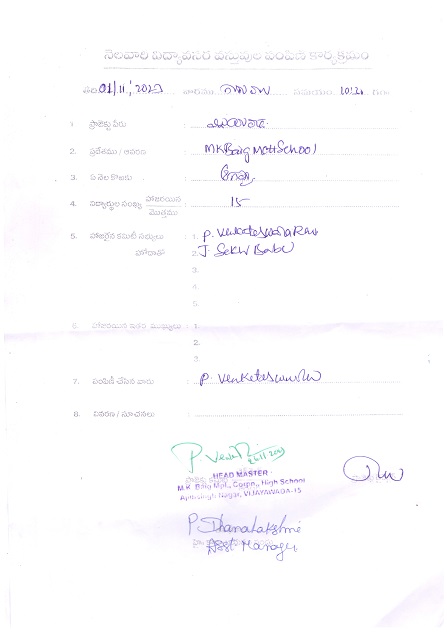 నెలవారి విద్యావసర వస్తువుల పంపిణి కార్యక్రమం
తేది 01/11/2023 వారము సమయం 10:20 గం॥
1. ప్రాజెక్టు పేరు :
2. ప్రదేశము / ఆవరణ : M K Baig M C H School
3. ఏ నెల కొరకు :
4. సభ్యుల సంఖ్య హాజరయిన / మొత్తము : 15
5. హాజరైన కమిటీ సభ్యులు : 1. P. Venkateswara Rao
హోదాతో 2. J. Sekhar Babu
3.
4.
5.
6. హాజరయిన ఇతర ముఖ్యులు : 1.
2.
3.
7. పంపిణీ చేసిన వారు : P. Venkateswara Rao
8. వివరణ / సూచనలు :
HEAD MASTER
M.K. Baig Mpl., Corpn., High School
Ajithsingh Nagar, VIJAYAWADA-15
P. Dhanalakshmi
Asst Manager